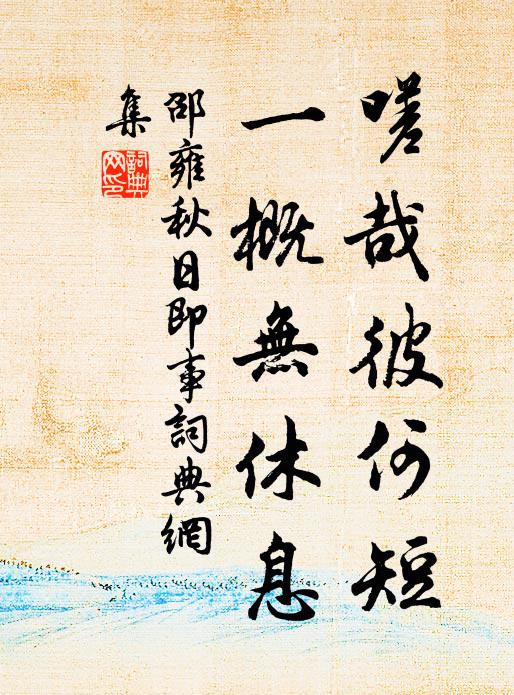 嗟哉彼何短
一概無休息
邵雍秋日即事詞典網
集
詞典
网印